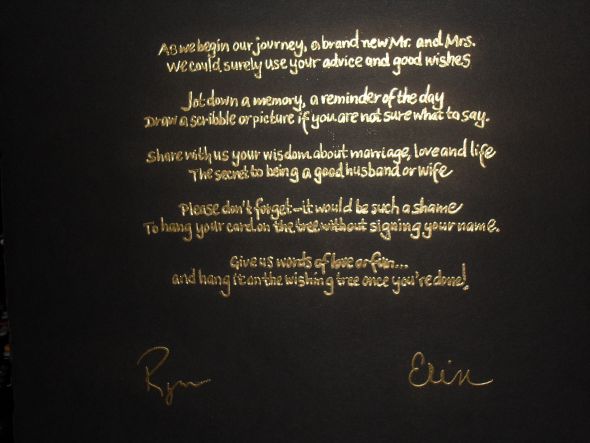 As we begin our journey, a brand new Mr. and Mrs.
We could surely use your advice and good wishes
Jot down a memory, a reminder of the day
Draw a scribble or picture if you are not sure what to say.
Share with us your wisdom about marriage, love and life
The secret to being a good husband or wife
Please don't forget - it would be such a shame
To hang your card on the tree without signing your name.
Give us words of love or fun...
and hang it on the wishing tree once you're done!
Ryan Elise